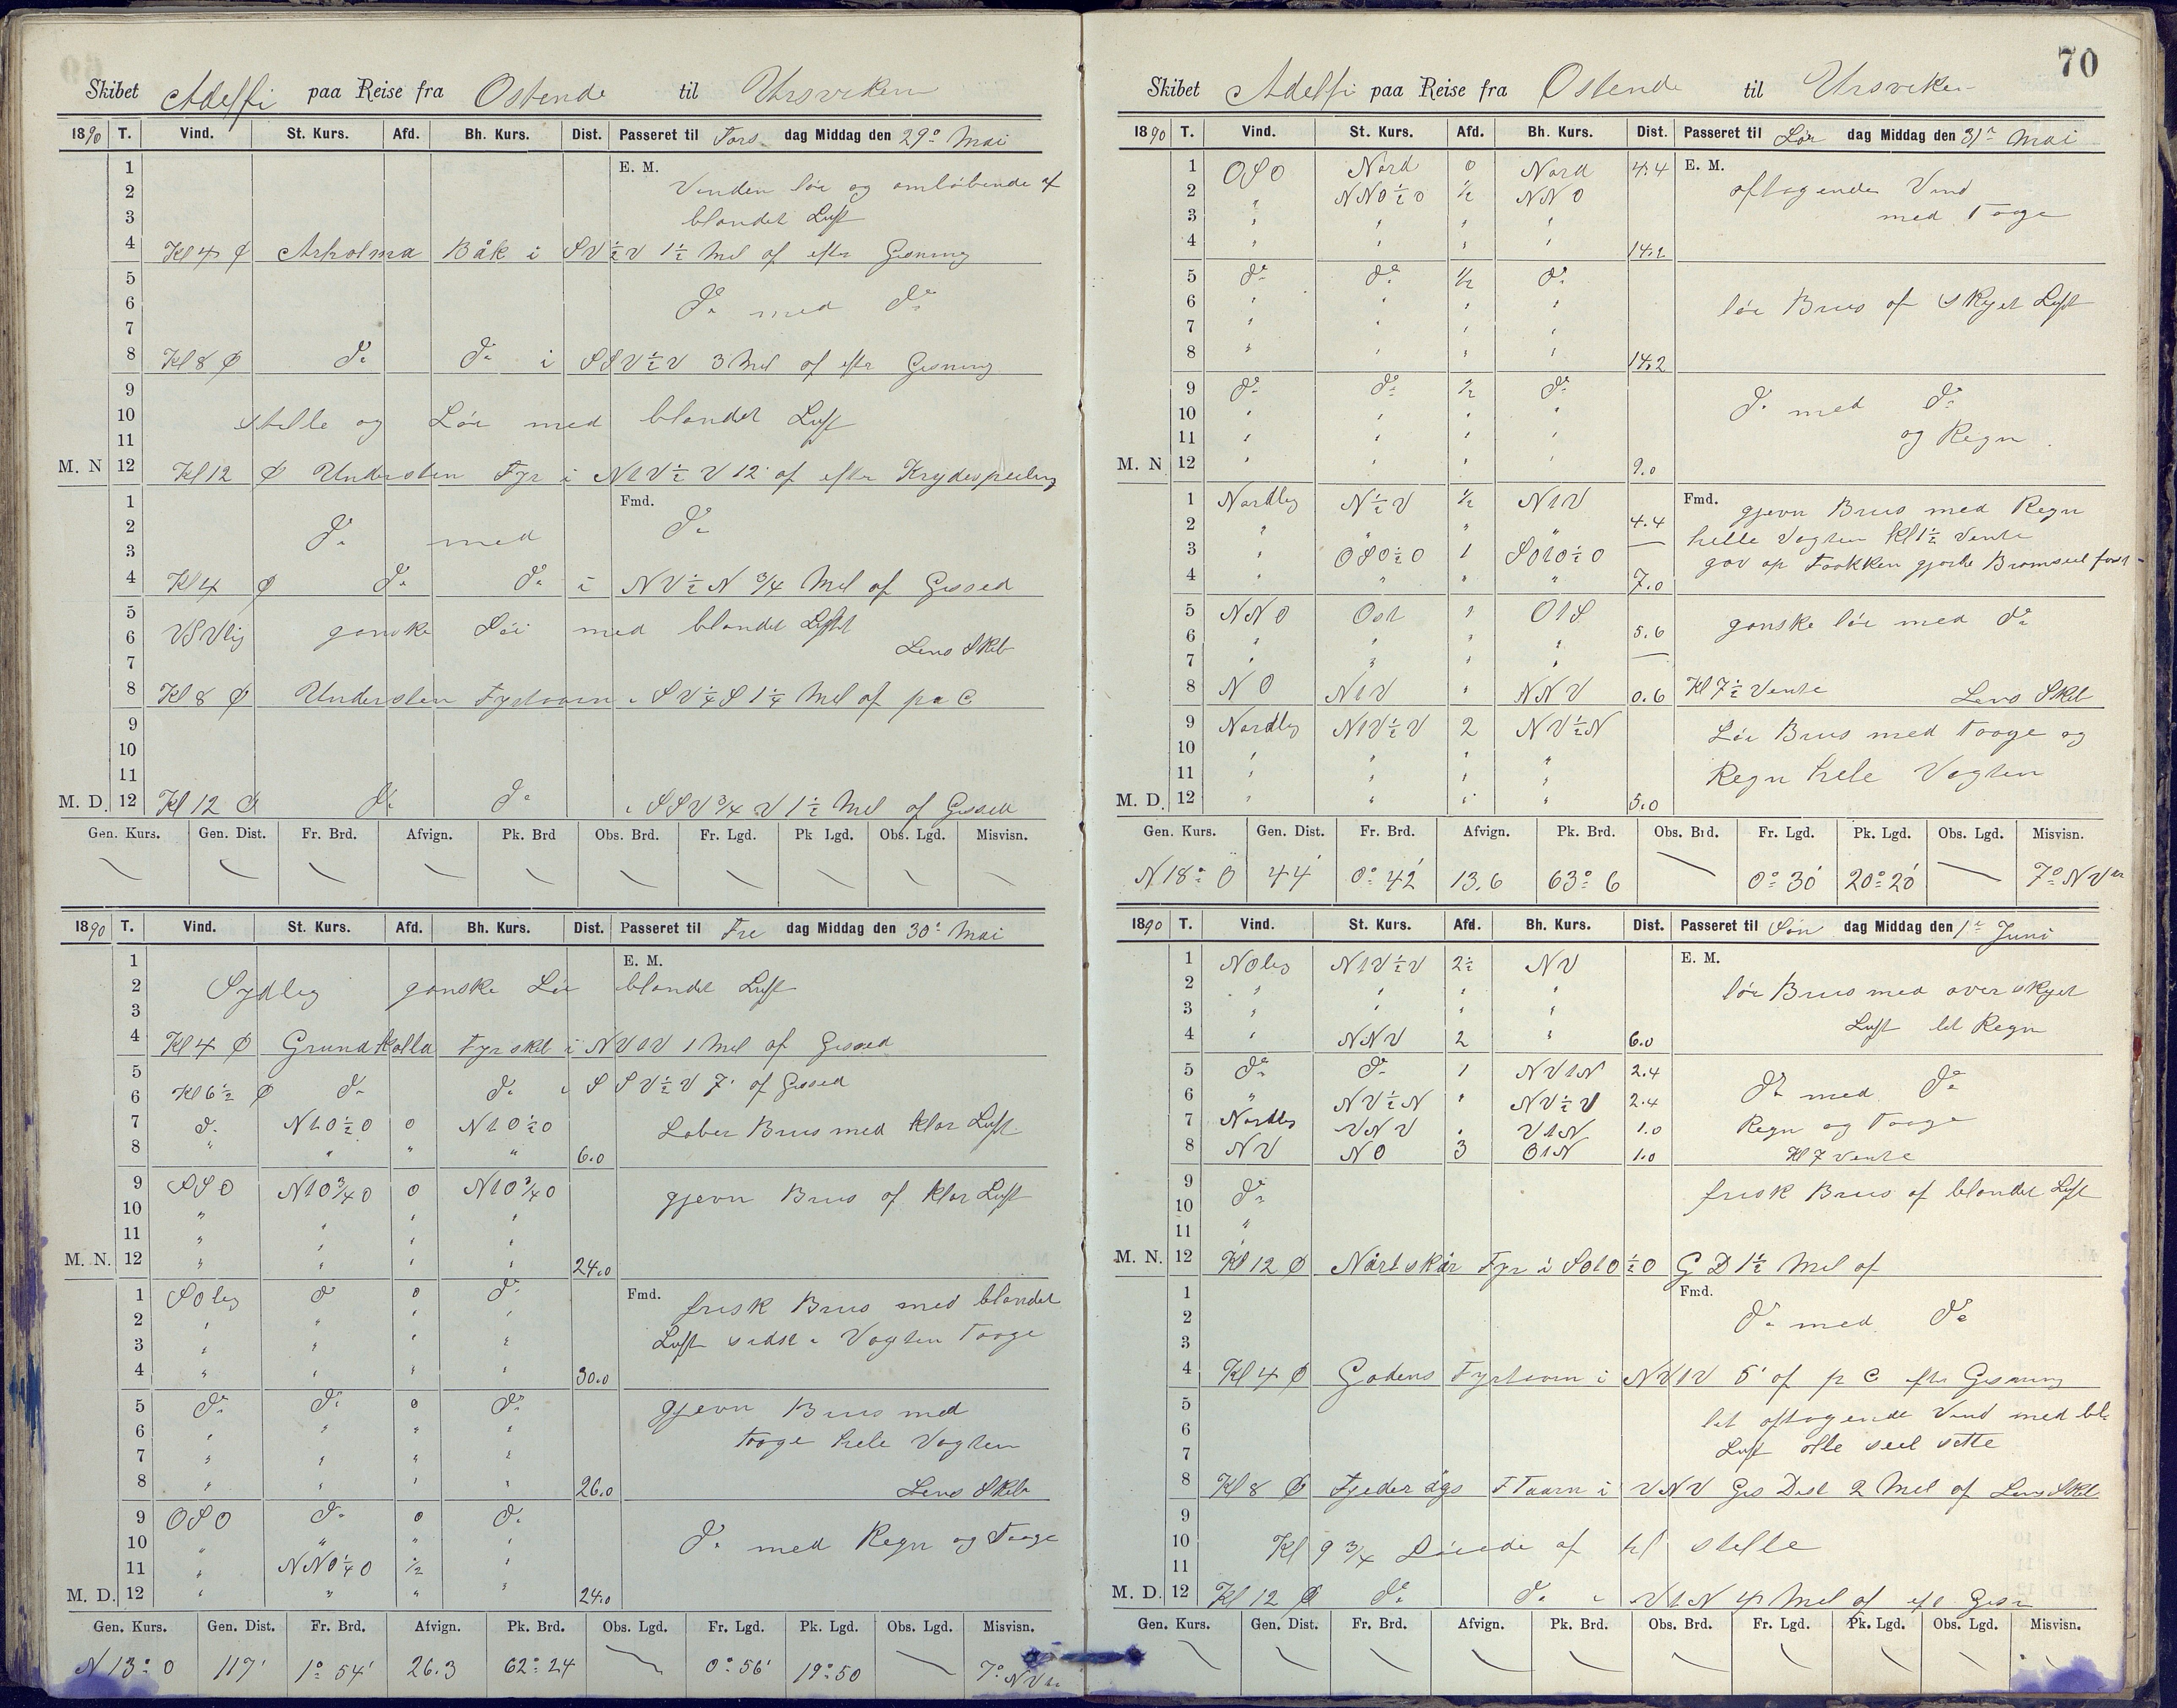 Skibet Adelfi paa Reise fra Ostende til Ursviken
1890 T. Vind. St. Kurs. Afd. Bh. Kurs. Dist. Passeret til Tors dag Middag den 29de Mai
1 E. M.
2 Vinden löi og omlöbende af
3 blandet Luft
4 Kl 4 Arholma Båk i SV½V 1½ Mil af efter Gisning
5
6 do med do
7
8 Kl 8 do do i SSV½V 3 Mil af efter Gisning
9
10 stille og Löi med blandet Luft
11
M. N 12 Kl 12 Understen Fyr i N1V½V 12' af efter Krydspeiling
1 Fmd.
2 do med do
3
4 Kl 4 do do i NV½N ¾ Mil af Gissed
5
6 VSVlig ganske Löi med blandet Luft
7 Lens Skib
8 Kl 8 Understen Fyrtaarn i SV¼S 1¼ Mil af pa C
9
10
11
M. D. 12 Kl 12 do do i SSV¾V 1½ Mil af Gissed
Gen. Kurs. Gen. Dist. Fr. Brd. Afvign. Pk. Brd Obs. Brd. Fr. Lgd. Pk Lgd. Obs. Lgd. Misvisn.
1890 T. Vind. St. Kurs. Afd. Bh. Kurs. Dist. Passeret til Fre dag Middag den 30te Mai
1 E. M.
2 Sydlig ganske Löi blandet Luft
3
4 Kl 4 Grundkalla Fyrskib i NV1V 1 Mil af Gissed
5
6 Kl 6½ do do i SSV½V 7' af Gissed
7 do N1O½O 0 N1O½O Laber Bris med klar Luft
8 " " " " 6.0
9 SSO N1O¾O 0 N1O¾O
10 " " " " gjevn Bris af klar Luft
11 " " " "
M. N. 12 " " " " 24.0
1 SOlig do 0 do Fmd. frisk Bris med blandet
2 " " " "
3 " " " " Luft sidst i Vagten Taage
4 " " " " 30.0
5 do do 0 do gjevn Bris med
6 " " " " taage hele Vagten
7 " " " "
8 " " " " 26.0 Lens Skib
9 OSO do 0 do
10 " " " " do med Regn og Taage
11 " NNO¼O ½ "
M. D. 12 " " " " 24.0
Gen. Kurs. Gen. Dist. Fr. Brd. Afvign. Pk. Brd. Obs. Lgd. Fr. Lgd. Pk. Lgd. Obs. Lgd. Misvisn.
N 13° O 117' 1° 54' 26.3 62° 24 0° 56' 19° 50 7° NV
70
Skibet Adelfi paa Reise fra Ostende til Ursviken
1890 T. Vind. St. Kurs. Afd. Bh. Kurs. Dist. Passeret til Lör dag Middag den 31te Mai
1 OSO Nord 0 Nord 4.4 E. M.
2 " NNO½O ½ NNO aftagende Vind
3 " " " " med Taage
4 " " " " 14.2
5 do do ½ do
6 " " " " löi Bris af skyet Luft
7 " " " "
8 " " " " 14.2
9 do do ½ do
10 " " " " do med do
11 " " " " og Regn
M. N 12 " " " " 9.0
1 Nordlig N½V ½ N1V Fmd. gjevn Bris med Regn
2 " " " " 4.4 helle Vagten Kl 1½ vente
3 " OSO½O 1 SO1O½O gav op Fokken gjorde Bramseil fast
4 " " " " 7.0
5 NNO Ost " O1S ganske löi med do
6 " " " " 5.6
7 " " " "
8 NO N1V " NNV 0.6 Kl 7½ vente Lens Skib
9 Nordlig N1V½V 2 NV½N Löi Bris med Taage og
10 " " " "
11 " " " " Regn hele Vagten
M. D. 12 " " " " 5.0
Gen. Kurs. Gen. Dist. Fr. Brd. Afvign. Pk. Brd. Obs. Brd. Fr. Lgd. Pk. Lgd. Obs. Lgd. Misvisn.
N 18° O 44' 0° 42' 13.6 63° 6 0° 30' 20° 20' 7° NV
1890 T. Vind. St. Kurs. Afd. Bh. Kurs. Dist. Passeret til Sön dag Middag den 1te Juni
1 NOlig N1V½V 2½ NV E. M.
2 " " " " löi Bris med over skyet
3 " " " "
4 " NNV 2 " 6.0 Luft let Regn
5 do do 1 NV1N 2.4
6 " NV½N " NV½V 2.4 do med do
7 Nordlig VNV " V1N 1.0 Regn og Taage
8 NV NO 3 O1N 1.0 Kl 7 vente
9 do frisk Bris af blandet Luft
10
11 "
M. N. 12 Kl 12 Nårdskår Fyr i SO1O½O G D 1½ Mil af
1 Fmd.
2 do med do
3
4 Kl 4 Gadens Fyrtaarn i NV1V 5' af p C efter Gisning
5
6 let aftagende Vind med bl.
7 Luft alle seil satte
8 Kl 8 Fjederägs F Taarn i VNV Gis Dist 2 Mil af Lens Skib
9
10 Kl 9¾ Löiede af til stille
11
M. D. 12 Kl 12 do do i V1N 4 Mil af
Gen. Kurs. Gen. Dist. Fr. Brd. Afvign. Pk. Brd. Obs. Brd. Fr. Lgd. Pk. Lgd. Obs. Lgd. Misvisn.